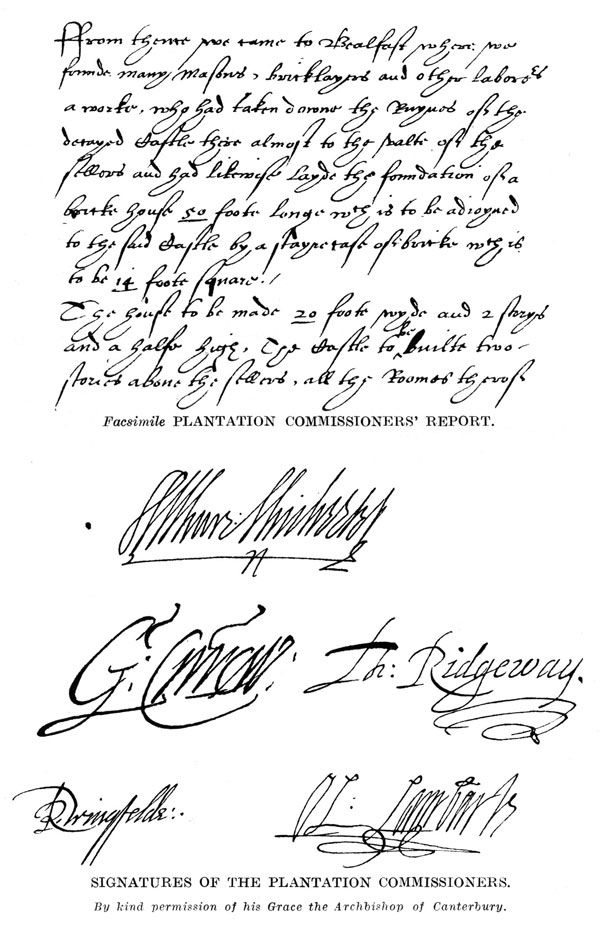 ffrom thence we came to Bealfast where we
founde many Masons, bricklayers and other laborers
a worke, who had taken downe the Ruynes of the
decayed Castle there almost to the valte of the
sellers and had likewise layde the foundation of a
bricke house 50 foote longe wch is to be adioyned
to the said Castle by a stayrecase of bricke wch is
to be 14 foote square./
The house to be made 20 foote wyde and 2 storys
and a halfe high, The Castle to be builte two
stories above the sellers, all the Roomes therof
Facsimile PLANTATION COMMISSIONERS' REPORT.
Arthure Chichester
G: Carew:
Th: Ridgeway.
R Wingfelde:.
OL: Lambart
SIGNATURES OF THE PLANTATION COMMISSIONERS.
By kind permission of his Grace the Archbishop of Canterbury.